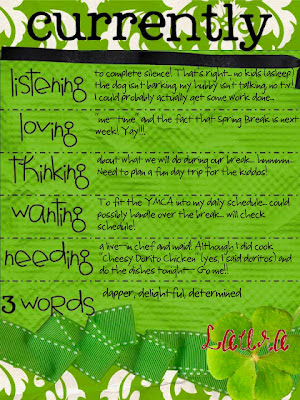 currently
listening
to complete silence! That's right... no kids (asleep)
the dog isn't barking, my hubby isn't talking, no t.v.!
I could probably actually get some work done...
loving
"me-time" and the fact that Spring Break is next
week! Yay!!!
thinking
about what we will do during our break... hmmmm...
Need to plan a fun day trip for the kiddos!
wanting
To fit the YMCA into my daily schedule... could
possibly handle over the break... will check
schedule!
needing
a live-in chef and maid! Although I did cook
"Cheesy Dorito Chicken" (yes, I said doritos) and
do the dishes tonight-- Go me!!
3 words
dapper, delightful, determined
Laura